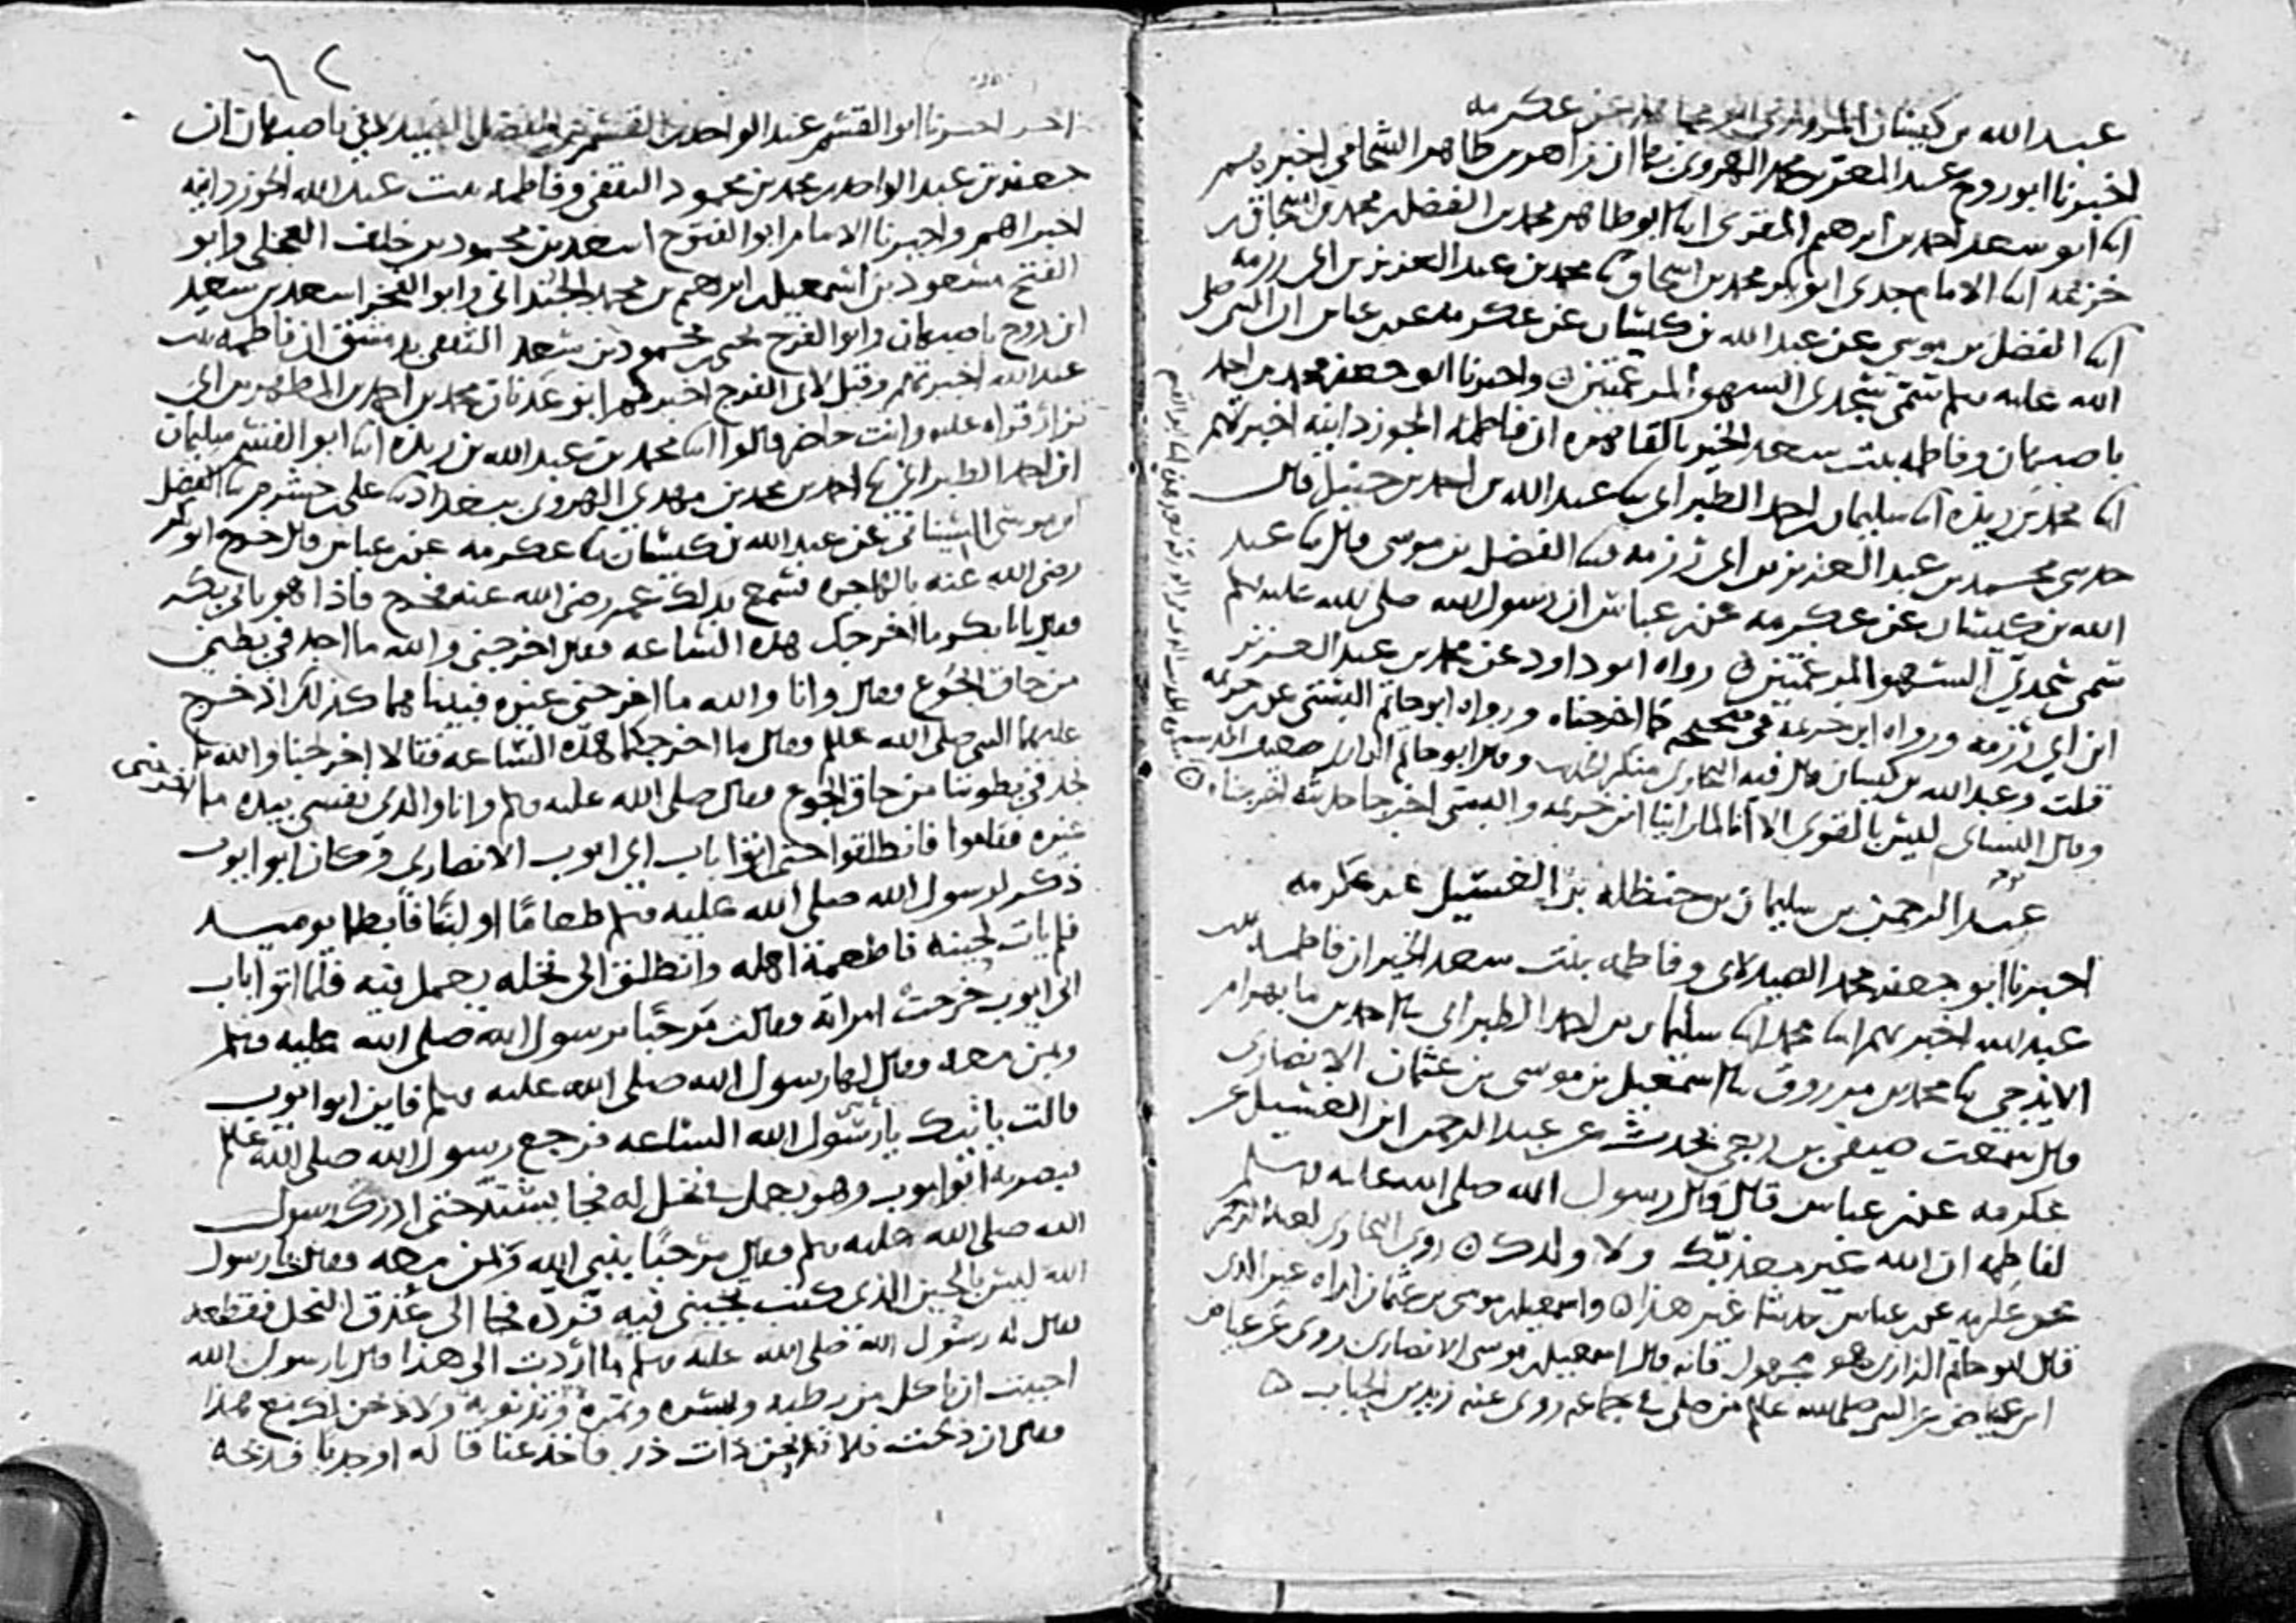 عبد الله بن كيسان المروزي ابو مجاهد عن عكرمه
اخبرنا ابو روح عبد المعز بن محمد الهروي بها ان زاهر بن طاهر الشحامي اخبرهم
ابنا ابو سعد احمد بن ابرهيم المقرى ابنا ابو طاهر محمد بن الفضل بن محمد بن اسحاق بن
خزيمه ابنا الامام جدى ابو بكر محمد بن اسحاق ثنا محمد بن عبد العزيز بن ابى رزمه
ابنا الفضل بن موسى عن عبد الله بن كيسان عن عكرمه عن ابن عباس ان النبى صلى
الله عليه وسلم سمى سجدتى السهو المرغمتين ٥ واخبرنا ابو جعفر محمد بن احمد
باصبهان وفاطمه بنت سعد الخير بالقاهره ان فاطمه الجوزدانيه اخبرتهم
ابنا محمد بن ريذه ابنا سليمان بن احمد الطبرانى ثنا عبد الله بن احمد بن حنبل قال
حدثنى محمد بن عبد العزيز بن ابى رزمه ثنا الفضل بن موسى قال ثنا عبد
الله بن كيسان عن عكرمه عن ابن عباس ان رسول الله صلى الله عليه وسلم
سمى سجدتى السهو المرغمتين ٥ رواه ابو داود عن محمد بن عبد العزيز
ابن ابي رزمه ورواه ابن خزيمه في صحيحه كما اخرجناه ورواه ابو حاتم البستى عن ابن خزيمه
قلت وعبد الله بن كيسان قال فيه البخارى منكر الحديث وقال ابو حاتم الرازى ضعيف الحديث
وقال النسائى ليس بالقوى الا انا لما راينا ابن خزيمه والبستى اخرجا حديثه اخرجناه ٥
عبد الرحمن بن سليمان بن حنظله بن الغسيل عن عكرمه
اخبرنا ابو جعفر محمد الصيدلانى وفاطمه بنت سعد الخير ان فاطمه بنت
عبد الله اخبرتهم ابنا محمد ابنا سليمان بن احمد الطبرانى ثنا احمد بن ما بهرام
الايذجى ثنا محمد بن مرزوق ثنا اسمعيل بن موسى بن عثمان الانصارى
قال سمعت صيفى بن ربعى يحدث عن عبد الرحمن ابن الغسيل عن
عكرمه عن ابن عباس قال قال رسول الله صلى الله عليه وسلم
لفاطمه ان الله غير معذبك ولا ولدك ٥ روى البخارى لعبد الرحمن
عن عكرمه عن ابن عباس حديثا غير هذا ٥ واسمعيل بن موسى بن عثمان اراه غير الذى
قال ابو حاتم الرازى هو مجهول فانه قال اسمعيل بن موسى الانصارى روى عن عياض
ابن عياض عن النبى صلى الله عليه من صلى في جماعه روى عنه زيد بن الحباب ٥
٦٢
اخر اخبرنا ابو القسم عبد الواحد بن القسم بن الفضل الصيدلانى باصبهان ان
جعفر بن عبد الواحد بن محمد بن محمود الثقفى وفاطمه بنت عبد الله الجوزدانيه
اخبراهم واخبرنا الامام ابو الفتوح اسعد بن محمود بن خلف العجلى وابو
الفتح مسعود بن اسمعيل بن ابرهيم بن محمد الجندانى وابو الفخر اسعد بن سعيد
ابن روح باصبهان وابو الفرج يحيى بن محمود بن سعد الثقفى بدمشق ان فاطمه بنت
عبد الله اخبرتهم وقيل لابى الفرج اخبركم ابو عدنان محمد بن احمد بن المطهر بن ابى
نزار قراه عليه وانت حاضر قالوا ابنا محمد بن عبد الله بن ريذه ابنا ابو القسم سليمان
ابن احمد الطبرانى ثنا احمد بن محمد بن مهدى الهروى ببغداد ثنا على بن خشرم ثنا الفضل
ابن موسى السينانى عن عبد الله بن كيسان ثنا عكرمه عن ابن عباس قال خرج ابو بكر
رضى الله عنه بالهاجره فسمع بذلك عمر رضى الله عنه فخرج فاذا هو بابى بكر
فقال يا ابا بكر ما اخرجك هذه الساعه فقال اخرجنى والله ما اجد فى بطنى
من حاق الجوع فقال وانا والله ما اخرجنى غيره فبينا هما كذلك اذ خرج
عليهما النبى صلى الله عليه وسلم فقال ما اخرجكما هذه الساعه فقالا اخرجنا والله ما
نجد فى بطوننا من حاق الجوع فقال صلى الله عليه وسلم وانا والذى نفسى بيده ما اخرجنى
غيره فقاموا فانطلقوا حتى اتوا باب ابى ايوب الانصارى وكان ابو ايوب
ذكر لرسول الله صلى الله عليه وسلم طعاما او لبنا فابطا يوميذ
فلم يات لحينه فاطعمه اهله وانطلق الى نخله يعمل فيه فلما اتوا باب
ابى ايوب خرجت امراته فقالت مرحبا برسول الله صلى الله عليه وسلم
وبمن معه فقال لها رسول الله صلى الله عليه وسلم فاين ابو ايوب
قالت ياتيك يا رسول الله الساعه فرجع رسول الله صلى الله عليه وسلم
فبصر به ابو ايوب وهو يعمل فى نخل له فجا يشتد حتى ادرك رسول
الله صلى الله عليه وسلم فقال مرحبا بنبى الله وبمن معه فقال يا رسول
الله ليس بالحين الذى كنت تجيبنى فيه فرده فجا الى عذق النخل فقطعه
فقال له رسول الله صلى الله عليه وسلم ما اردت الى هذا قال يا رسول الله
احببت ان تاكل من رطبه وبسره وتمره وتذنوبه ولاذبحن لك مع هذا
فقال ان ذبحت فلا تذبحن ذات در فاخذ عناقا له او جديا فذبحه